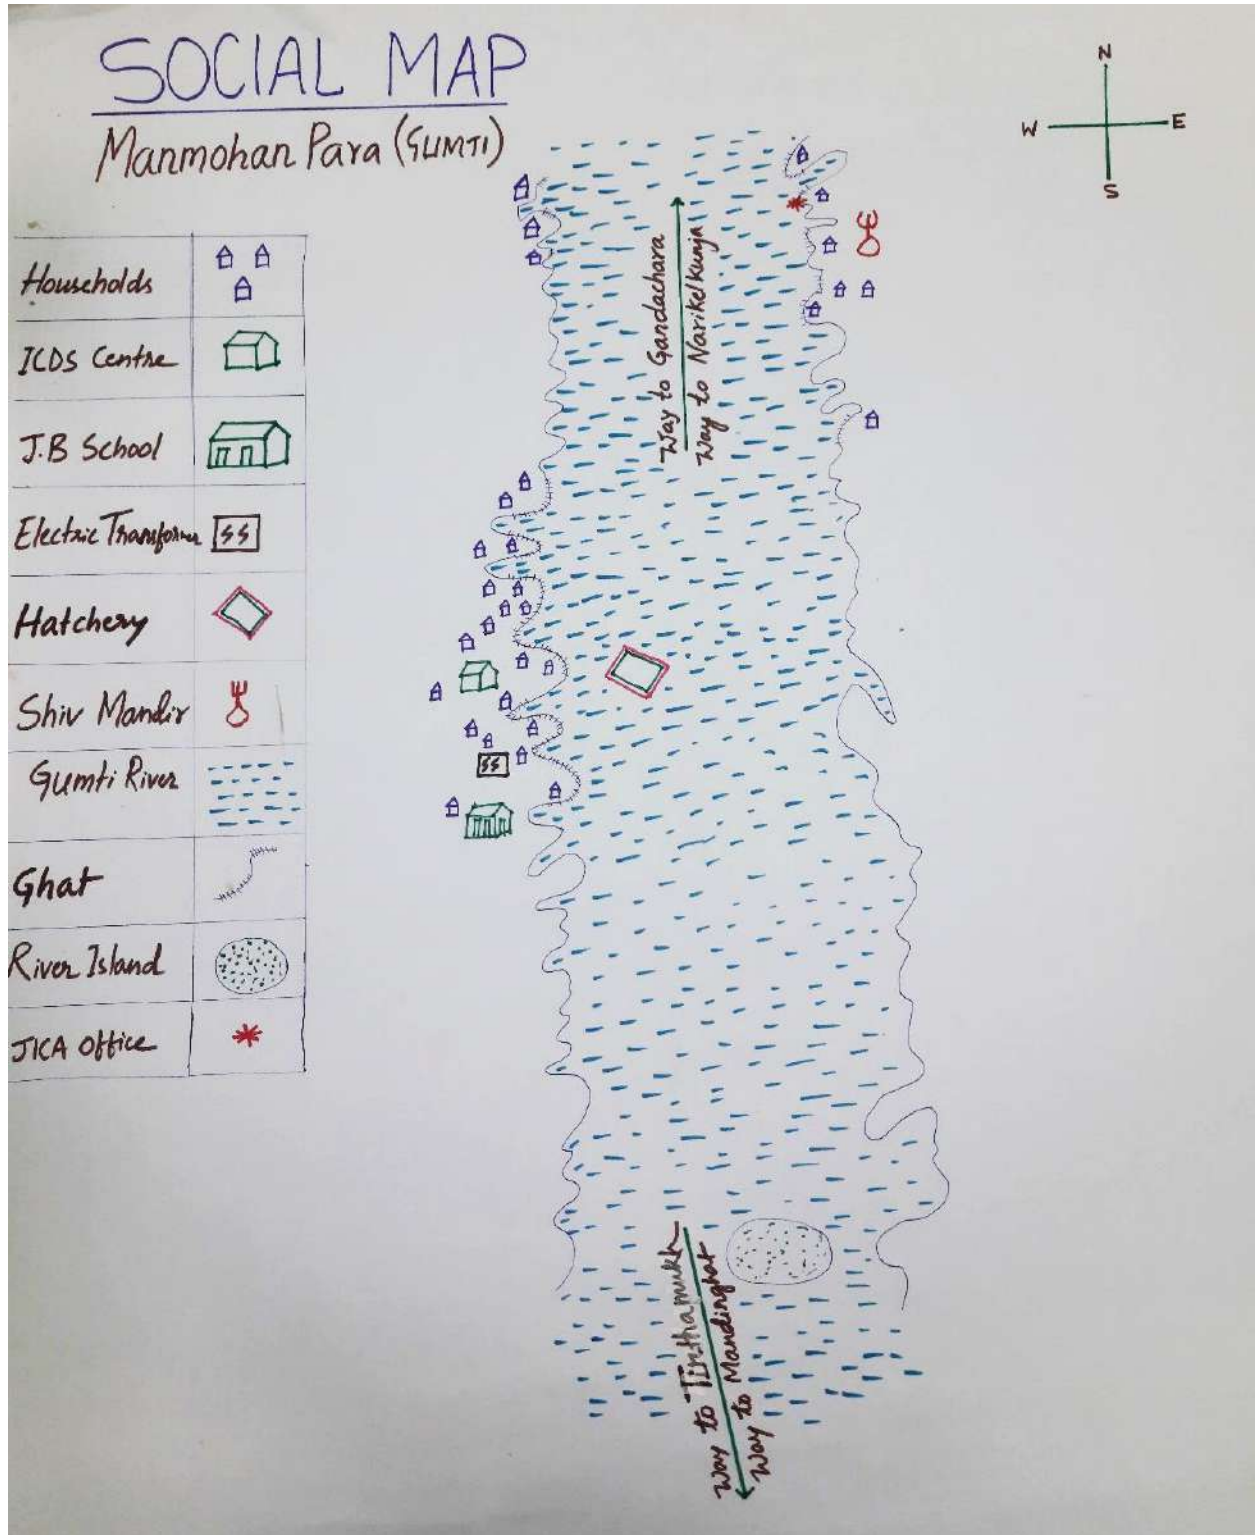 SOCIAL MAP
Manmohan Para (GUMTI)
N
W
E
S
Households
ICDS Centre
J.B School
Electric Transformer
Hatchery
Shiv Mandir
Gumti River
Ghat
River Island
JICA Office
Way to Gandachara
Way to Narikel Kunja
Way to Tirthamukh
Way to Mandirghat